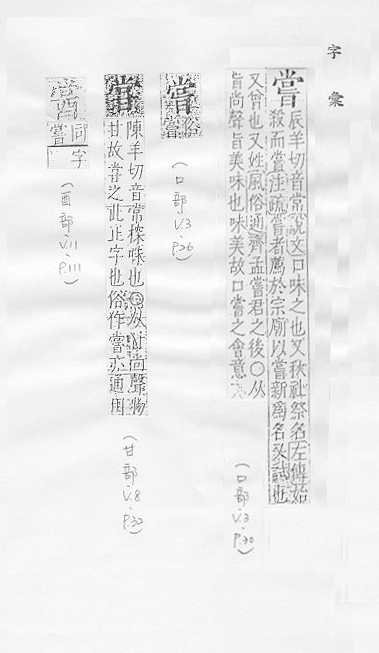 字彙
嘗
辰羊切音常說文口味之也又秋祭名左傳始
殺而嘗注疏嘗者薦於宗廟以嘗新爲名又試也
又曾也又姓風俗通齊孟嘗君之後○从
旨尚聲旨美味也味美故口嘗之會意
(口部、V.3、P.30)
嘗俗
嘗
(口部、V.3、P.26)
陳羊切音常探味也○从甘尚聲物
甘故嘗之此正字也俗作嘗亦通用
(甘部、V.8、P.32)
同字
嘗
(酉部、V.11、P.111)